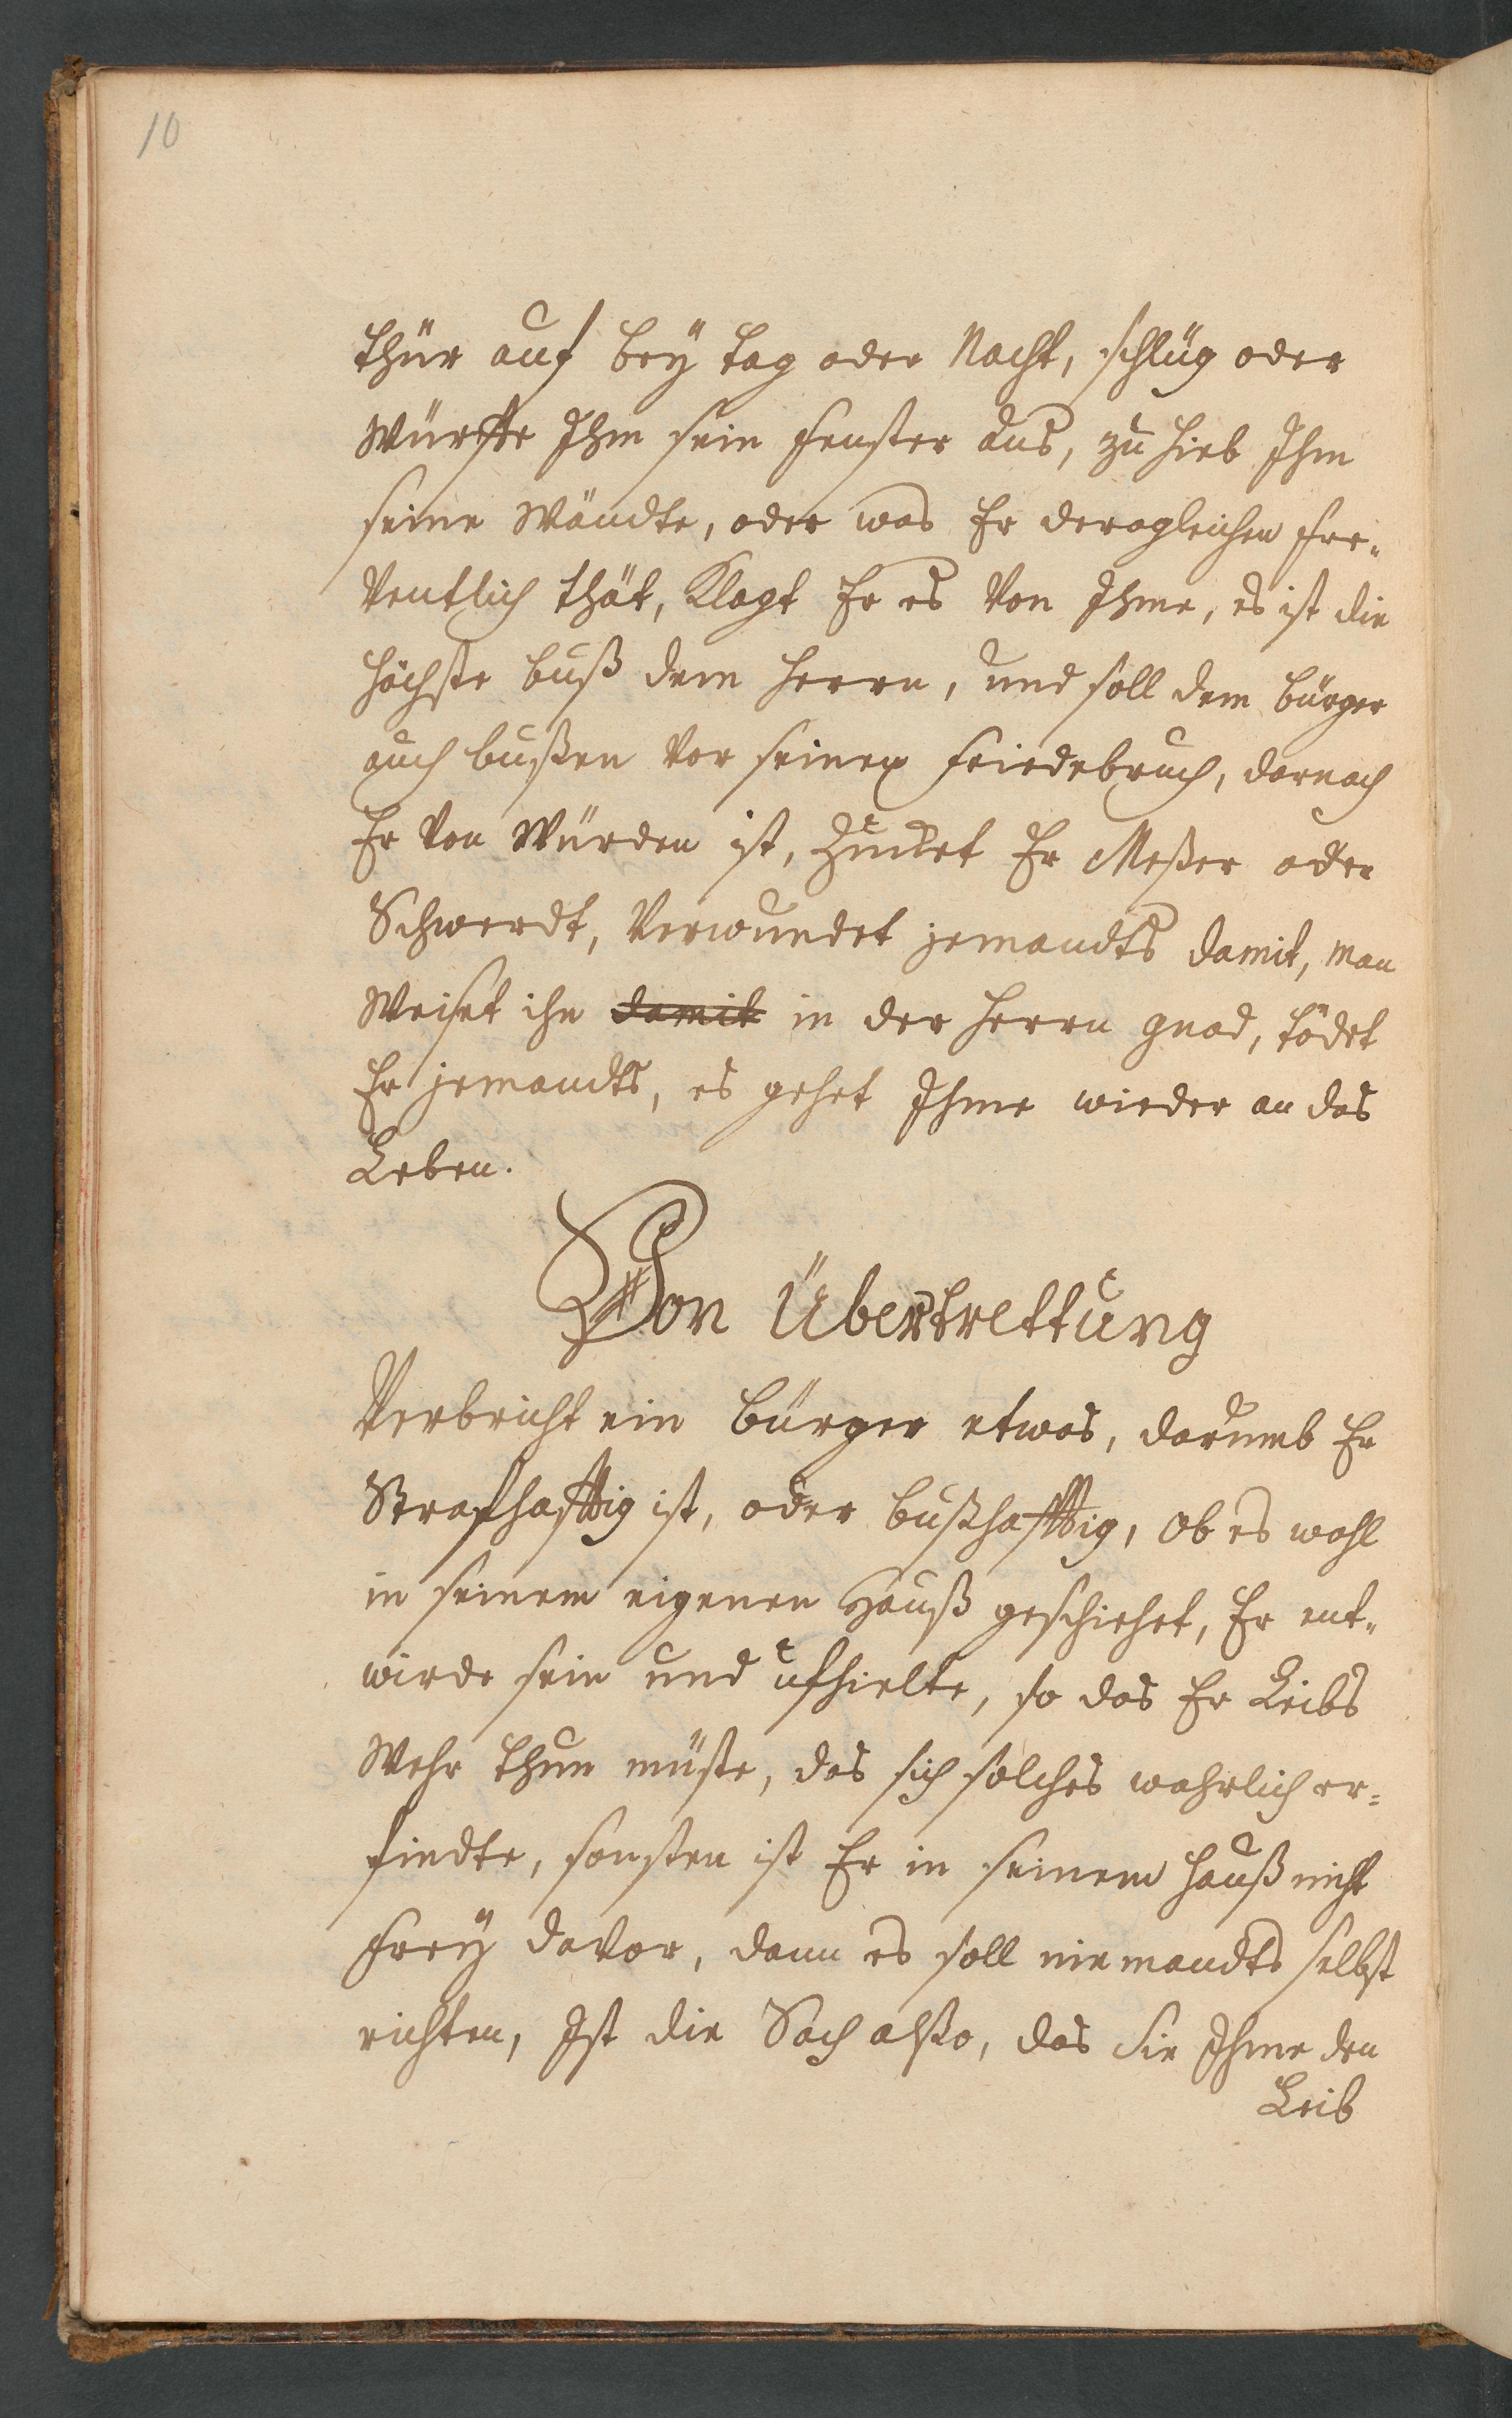 10
thür auf bey tag oder Nacht, schlüg oder
Würffe Ihm sein fenster aus, zu hieb Ihm
seine Wändte, oder was Er deragleichen fre-
Ventlich thät, Klagt Er es Von Ihme, es ist die
höchste buß dem Herrn, und soll dem bürger
auch bußen Vor seinen friedebruch, darnach
Er Von Würden ist, Zucket Er Meßer oder
Schwerdt, Verwundet jemandts damit, man
Weiset ihn damit in der Herrn gnad, tödet
Er jemandts, es gehet Ihme wieder an das
Leben.
Von Übertrettung
Verbricht ein bürger etwas, darumb Er
Strafhafftig ist, oder bußhafftig, ob es wohl
in seinem eigenen Hauß geschiehet, Er ent-
wirde sein und ufhielte, so das Er Leibs
Wehr thun müste, das sich solches wahrlich er-
findte, sonsten ist Er in seinem Hauß nicht
frey davor, dann es soll niemandts selbst
richten, Ist die Sach alßo, das Sie Ihme den
Leib